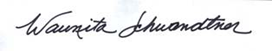 Waunita Schwandtner